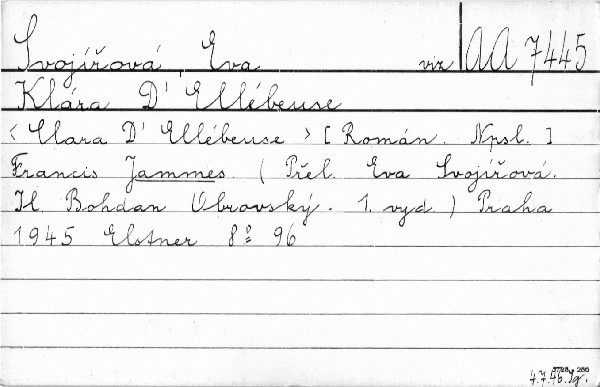 Svojířová, Eva viz AA 7445
Klára D' Ellébeuse
< Clara D' Ellébeuse > [ Román. Npsl. ]
Francis Jammes. ( Přel. Eva Svojířová.
Il. Bohdan Obrovský. 1. vyd ) Praha
1945 Elstner 8° 96
4.7.46.